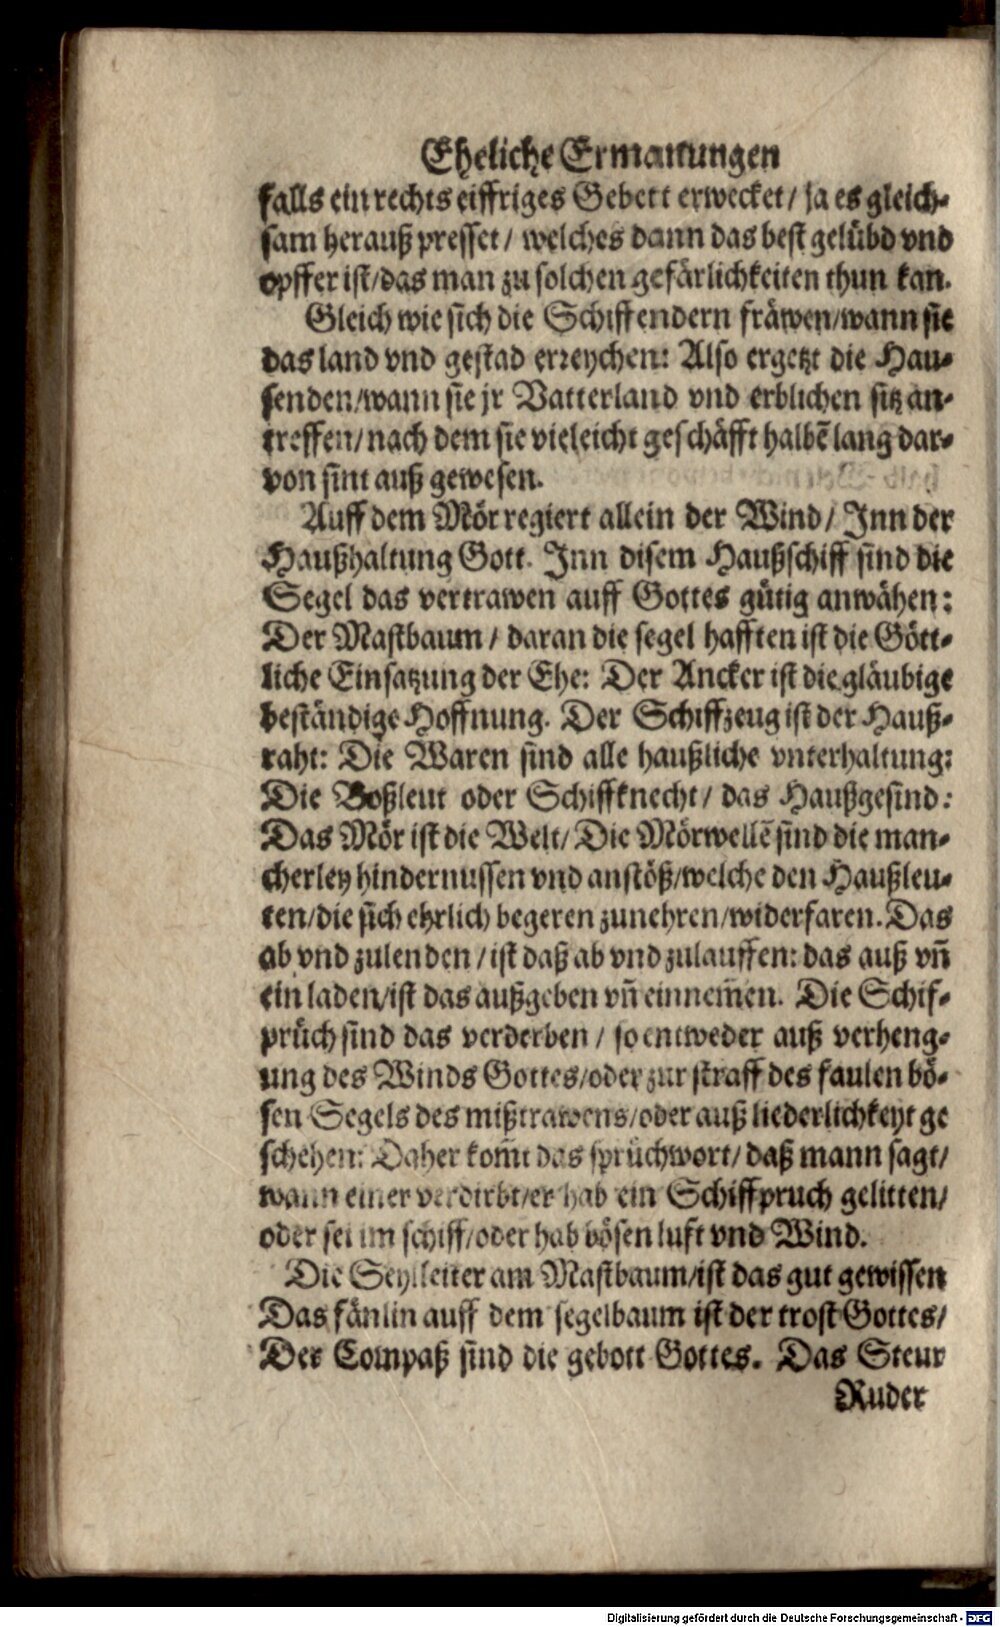 Eheliche Ermanungen
falls ein rechts eiffriges Gebett erwecket / ja es gleich-
sam herauß presset / welches dann das best gelübd vnd
opffer ist / das man zu solchen gefärlichkeiten thun kan.
Gleich wie sich die Schiffendern fräwen / wann sie
das land vnd gestad erreychen: Also ergetzt die Hau-
senden / wann sie jr Vatterland vnd erblichen sitz an-
treffen / nach dem sie vieleicht geschäfft halbẽ lang dar-
von sint auß gewesen.
Auff dem Mör regiert allein der Wind / Inn der
Haußhaltung Gott. Inn disem Haußschiff sind die
Segel das vertrawen auff Gottes gütig anwähen:
Der Mastbaum / daran die segel hafften ist die Gött-
liche Einsatzung der Ehe: Der Ancker ist die gläubige
beständige Hoffnung. Der Schiffzeug ist der Hauß-
raht: Die Waren sind alle haußliche vnterhaltung:
Die Boßleut oder Schiffknecht / das Haußgesind:
Das Mör ist die Welt / Die Mörwellẽ sind die man-
cherley hindernussen vnd anstöß / welche den Haußleu-
ten / die sich ehrlich begeren zunehren / widerfaren. Das
ab vnd zulenden / ist daß ab vnd zulauffen: das auß vñ
ein laden / ist das außgeben vñ einnem̃en. Die Schif-
prüch sind das verderben / so entweder auß verheng-
ung des Winds Gottes / oder zur straff des faulen bö-
sen Segels des mißtrawens / oder auß liederlichkeyt ge
schehen: Daher kom̃t das sprüchwort / daß mann sagt /
wann einer verdirbt / er hab ein Schiffpruch gelitten /
oder sei im schiff / oder hab bösen luft vnd Wind.
Die Seyleiter am Mastbaum / ist das gut gewissen
Das fänlin auff dem segelbaum ist der trost Gottes /
Der Compaß sind die gebott Gottes. Das Steur
Ruder
Digitalisierung gefördert durch die Deutsche Forschungsgemeinschaft - DFG